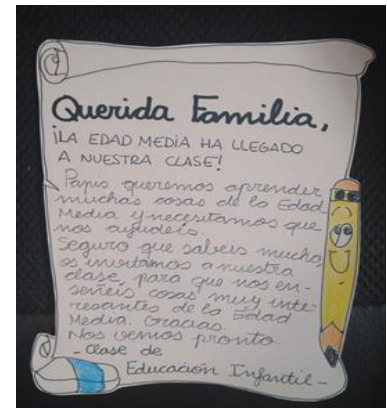 Querida Familia,
¡LA EDAD MEDIA HA LLEGADO
A NUESTRA CLASE!
Papis queremos aprender
muchas cosas de la Edad
Media y necesitamos que
nos ayudeis.
Seguro que sabeis mucho,
os invitamos a nuestra
clase, para que nos en-
señeis cosas muy inte-
resantes de la Edad
Media. Gracias.
Nos vemos pronto
- Clase de
Educación Infantil -